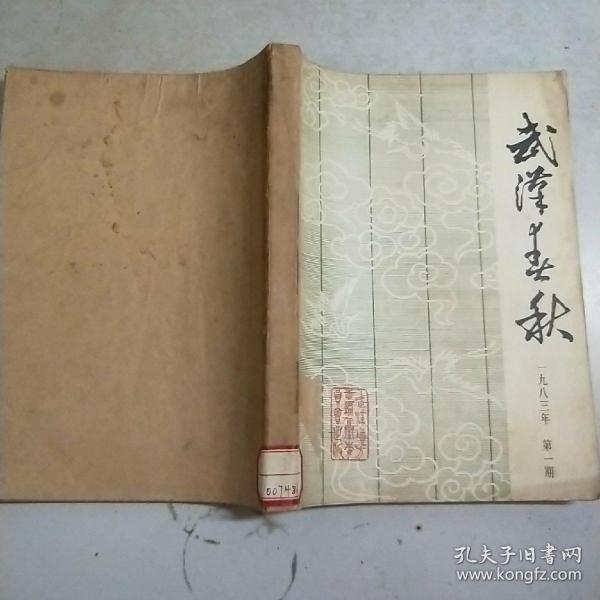 武汉春秋
一九八三年 第一期
007431
孔夫子旧书网
www.kongfz.com